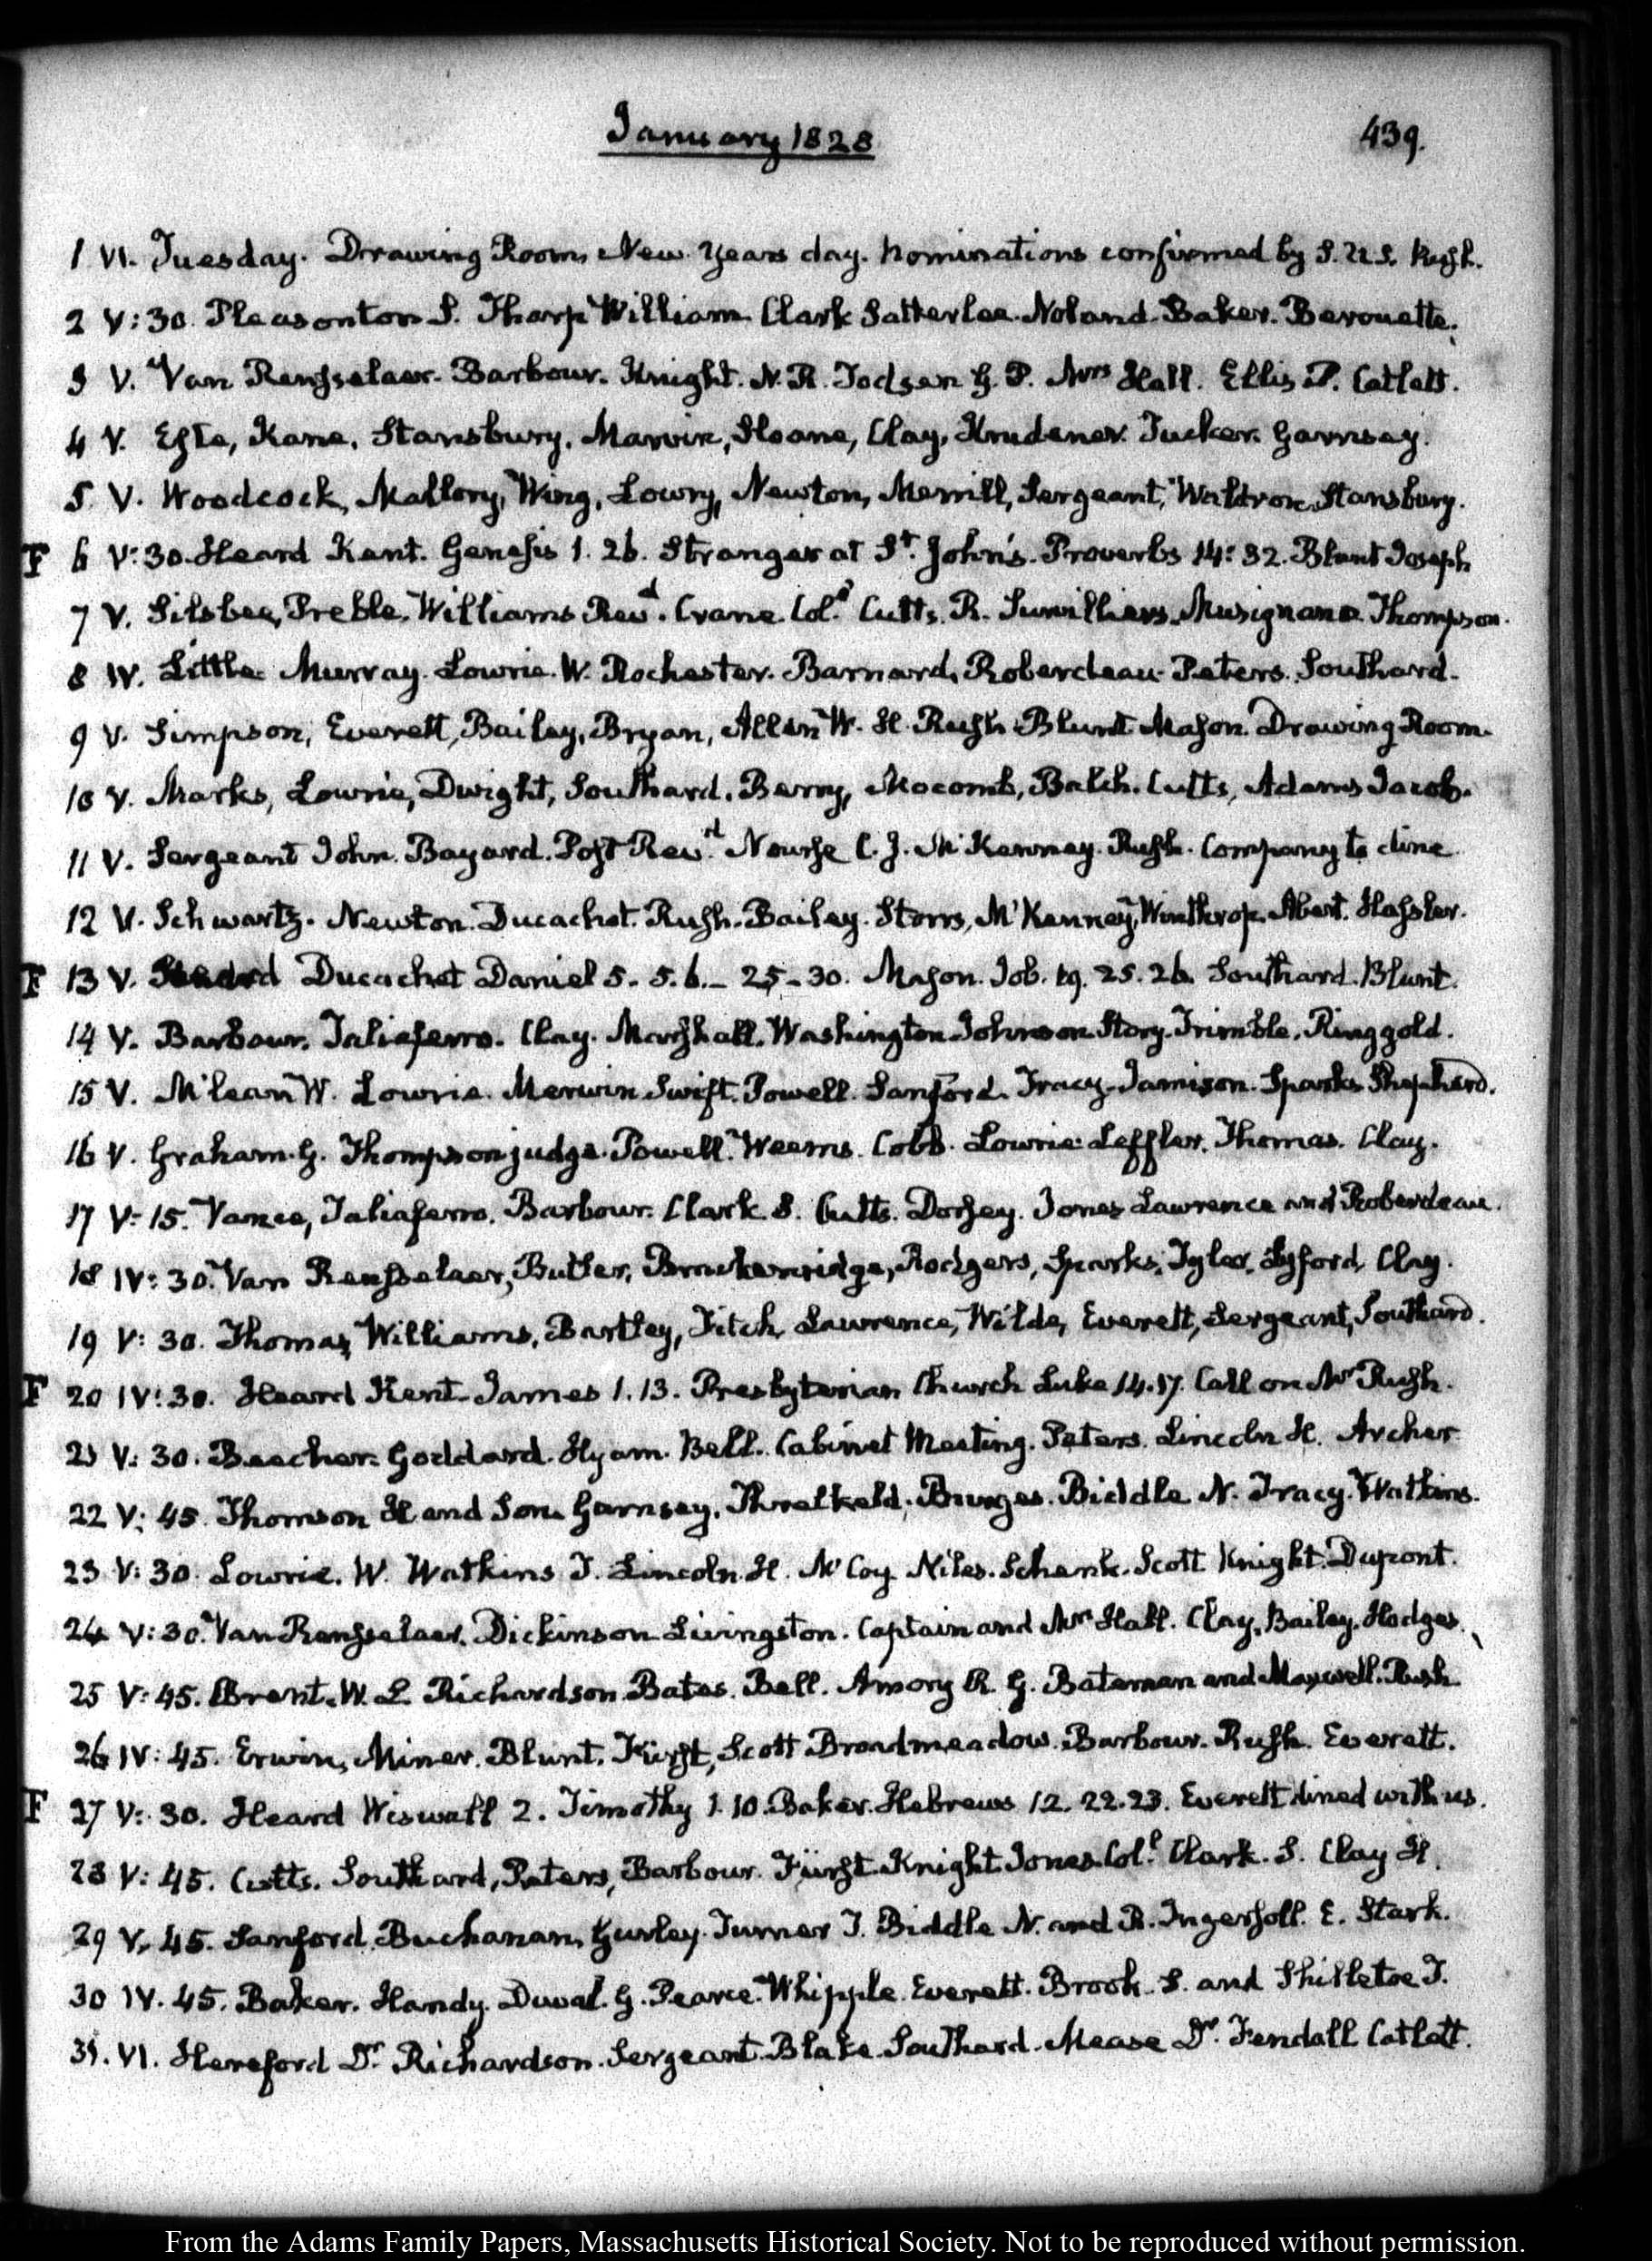 January 1828
439.
1 VI. Tuesday. Drawing Room, New Years day. Nominations confirmed by S.U.S. Rush.
2 V:30. Pleasonton S. Tharp William Clark Satterlee. Noland. Baker. Berouette.
3 V. Van Rensselaer. Barbour. Knight. N. R. Todsen G. P. Mrs Hall. Ellis P. Catlett.
4 V. Este, Kane, Stansbury, Marvin, Sloane, Clay, Krudener. Tucker. Garnsey.
5 V. Woodcock, Mallory, Wing, Lowry, Newton, Merrill, Sergeant, Waldron. Stansbury.
F 6 V:30. Heard Kent. Genesis 1. 26. Stranger at St. John's. Proverbs 14:32. Blunt Joseph
7 V. Silsbee, Preble, Williams Revd. Crane. Coll. Cutts. R. Survilliers. Musignano. Thompson.
8 IV. Little. Murray. Lowrie. W. Rochester. Barnard, Roberdeau. Peters. Southard.
9 V. Simpson, Everett, Bailey, Bryan, Allen W. H. Rush. Blunt Mason. Drawing Room.
10 V. Marks, Lowrie, Dwight, Southard, Berry, Macomb, Balch. Cutts, Adams Jacob.
11 V. Sergeant John. Bayard. Post Revd. Nourse C. J. McKenney. Rush. Company to dine
12 V. Schwartz. Newton. Ducachet. Rush. Bailey. Storrs, McKenney, Winthrop. Abert. Hassler.
F 13 V. Heard Ducachet Daniel 5. 5.6._ 25-30. Mason. Job. 19. 25. 26. Southard. Blunt.
14 V. Barbour. Taliaferro. Clay. Marshall. Washington. Johnson. Story. Trimble. Ringgold.
15 V. McLean W. Lowrie. Merwin. Swift. Powell. Sanford. Tracy. Jamison. Sparks. Shepherd.
16 V. Graham. G. Thompson judge. Powell. Weems. Cobb. Lowrie. Leffler. Thomas. Clay.
17 V:15. Vance, Taliaferro. Barbour. Clark S. Cutts. Dorsey. Jones Lawrence and Roberdeau.
18 IV:30. Van Rensselaer, Butler, Breckenridge, Rodgers, Sparks, Tyler, Clay.
19 V:30. Thomas, Williams, Bartley, Fitch, Lawrence, Wilde, Everett, Sergeant, Southard.
F 20 IV:30. Heard Kent. James 1. 13. Presbyterian Church Luke 14.17. Call on Mr Rush.
21 V:30. Beecher. Goddard. Hyam. Bell. Cabinet Meeting. Peters. Lincoln H. Archer
22 V:45. Thomson H and Son. Garnsey. Threlkeld. Burges. Biddle N. Tracy. Watkins.
23 V:30. Lowrie. W. Watkins T. Lincoln. H. McCoy. Niles. Schenk. Scott Knight. Dupont.
24 V:30. Van Rensselaer. Dickinson Livingston. Captain and Mrs Hall. Clay, Bailey. Hodges.
25 V:45. Brent. W. L. Richardson. Bates. Bell. Amory R. G. Bateman and Maxwell. Rush
26 IV:45. Erwin, Miner. Blunt. Fürst, Scott Broadmeadow. Barbour. Rush. Everett.
F 27 V:30. Heard Wiswall 2. Timothy 1. 10. Baker. Hebrews 12. 22.23. Everett dined with us.
28 V:45. Cutts. Southard, Peters, Barbour. Fürst. Knight. Jones. Coll. Clark. S. Clay H.
29 V. 45. Sanford. Buchanan, Gurley. Turner J. Biddle N. and R. Ingersoll. E. Stark.
30 IV. 45. Baker. Handy. Duval. G. Pearce. Whipple. Everett. Brook. S. and Shilletoe T.
31. VI. Hereford Dr Richardson. Sergeant. Blake. Southard. Mease Dr. Fendall Catlett.
From the Adams Family Papers, Massachusetts Historical Society. Not to be reproduced without permission.